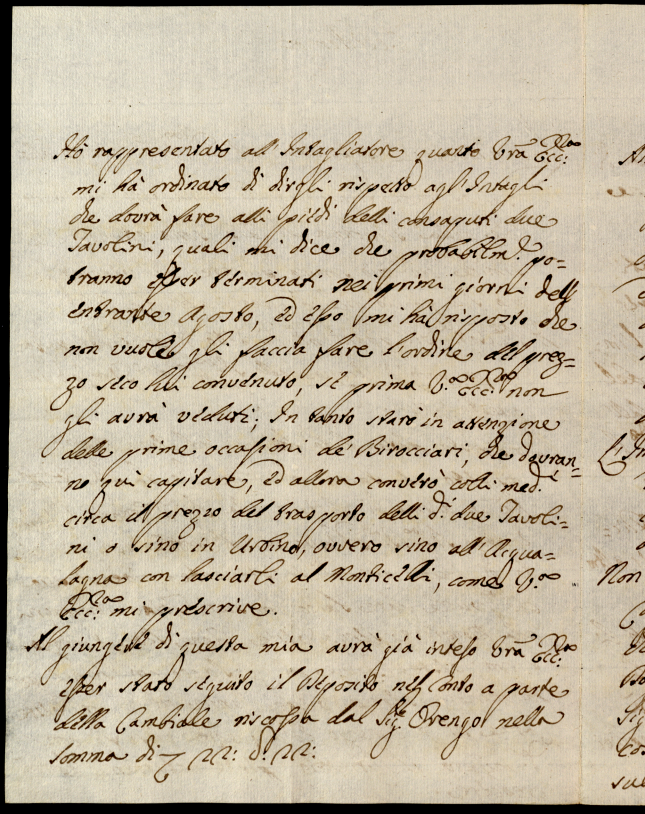 Hò rappresentato all'Intagliatore quanto Vrã Ecc:
mi hà ordinato di dirgli rispetto agl'Intagli
che dovrà fare alli piedi delli consaputi due
Tavolini, quali mi dice che probabilm.e po=
tranno esser terminati nei primi giorni dell
entrante Agosto, ed esso mi hà risposto che
non vuole gli faccia fare l'ordine del prez=
zo seco lui convenuto, se prima V.ra Ecc.za non
gli avrà veduti; In tanto starò in attenzione
delle prime occasioni de' Birocciari, che dovran=
no quì capitare, ed allora converrò colli med.i
circa il prezzo del trasporto delli d.i due Tavoli=
ni o sino in Urbino, ovvero sino all'Acqua=
lagna con lasciarli al Monticelli, come V.ra
Ecc.za mi prescrive.
Al giungere di questa mia avrà già inteso Vrã Ecc:
esser stato seguito il Deposito nel Conto a parte
della Cambiale riscossa dal Sig.r Orengo nella
somma di